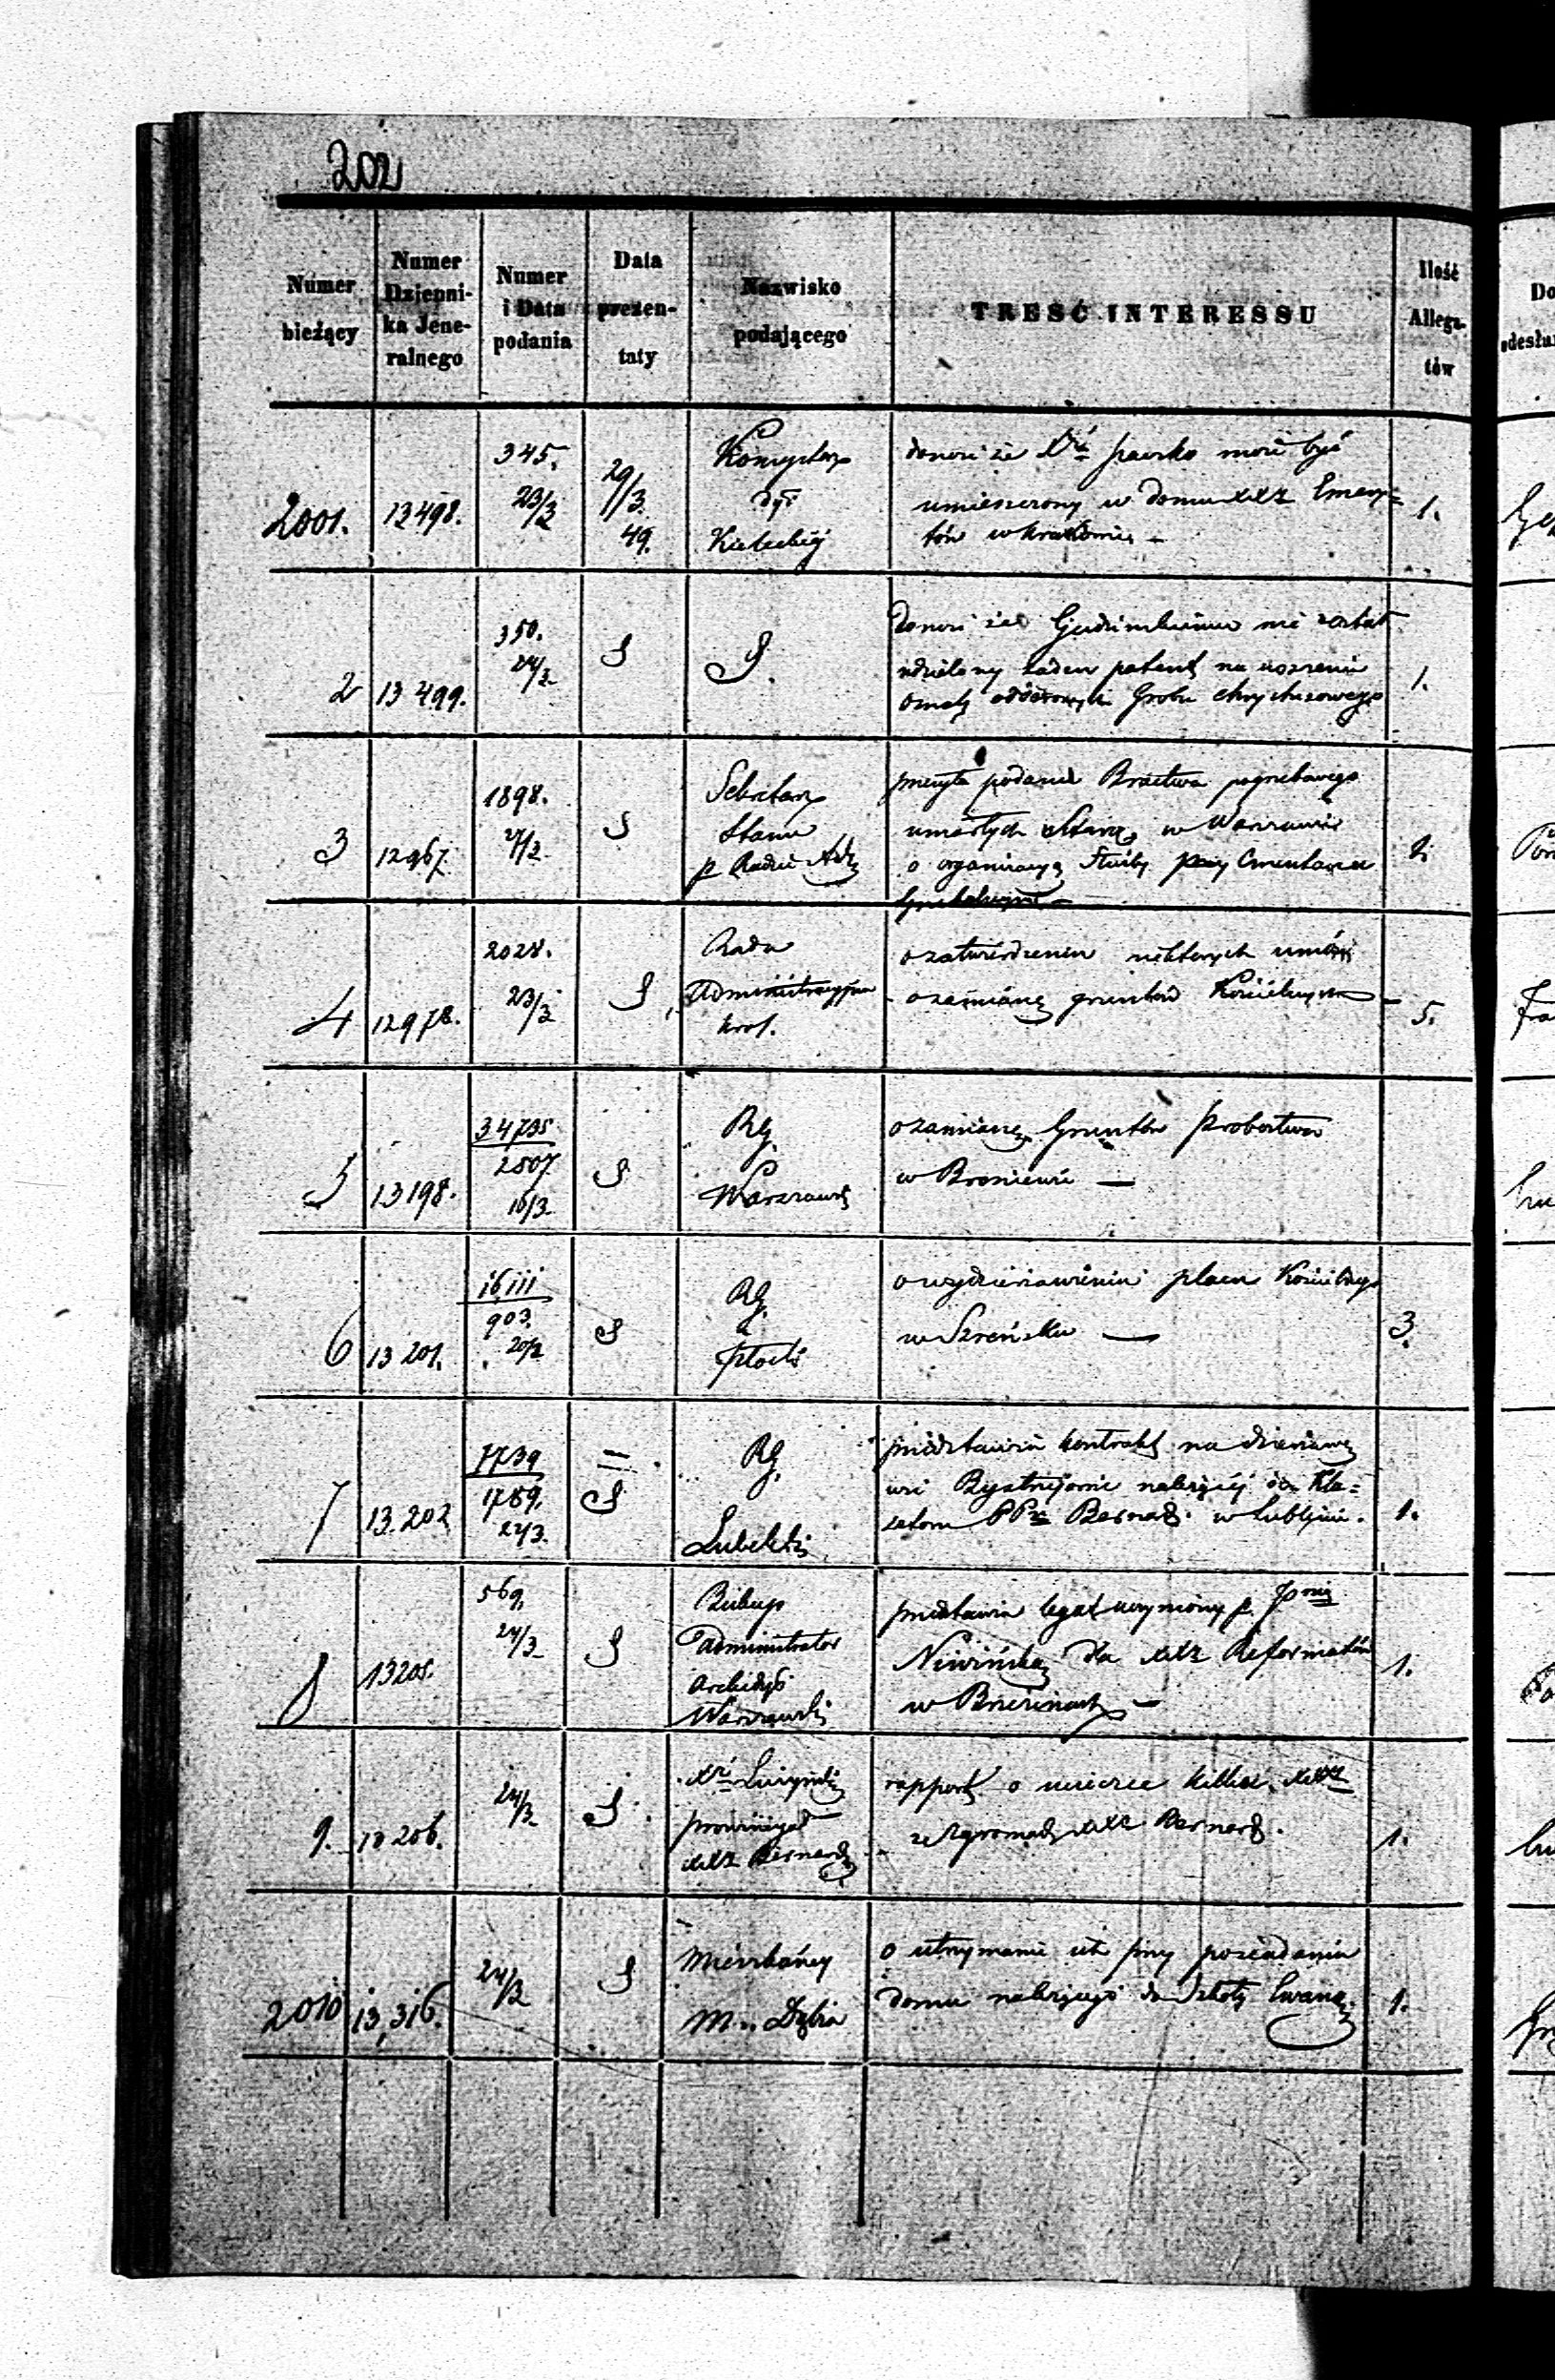 202
Numer bieżący
Numer Dzienni- ka Jene- ralnego
Numer i Data podania
Data prezen- taty
Nazwisko podającego
TREŚĆ INTERESSU
Ilość Allega- tów
2001.
13498.
345.
23/3
29/3.
49.
Konsystorz
dyi
Kieleckiej
donosi że Xdz Pawsko może być
umieszczony w domu XXX Emery=
tów w Krakowie –
1.
2
13499.
350.
24/3
S
S.
donosi że nie został
udzielony żaden patent na noszenie
Grobu Chrystusowego
1.
3
12967.
1898.
21/3
S
Sekretarz
Stanu
p Radzie Adz
przesyła podanie Bractwa pogrzebowego
umarłych w Warszawie
o organizacyą Służby przy Cmentarzu
2.
4
12978.
2028.
23/3
S
Rada
Administracyjna
Krol.
o zatwierdzenie niektorych umów
o zamianę gruntów Kościelnych –
5.
5
13198.
34735
2507
16/3
S
RG.
Warszawsk
o zamianę Gruntów Probostwa
w Broniewie —
6
13201.
16,111
903.
20/3
S
RG.
Płocki
o wydzierżawienie placu Kościelnego
w Szreńsku —
3.
7
13.202
7739
1759.
22/3.
S
RG.
Lubelski
przedstawia kontrakt na dzierżawę
wsi Bystrzejowie należącej do Kla=
sztoru PPn Bernard. w Lublinie.
1.
8
13205.
569.
24/3
S
Biskup
Administrator
Archidyi
Warszawski
przedstawia legat uczyniony p. Pnią
Niwińską dla XXX Reformatów
w Brzezinach –
1.
9.
13206.
24/3
S
prowincyał
XXX Bernard
rapport o ucieczce XXX
ze Zgromadz XXX Bernard.
1.
2010
13,316.
24/3
S
Mieszkańcy
m. Dębia
o utrzymanie ich przy posiadaniu
domu należącego do Szkoły Ewang.
1.